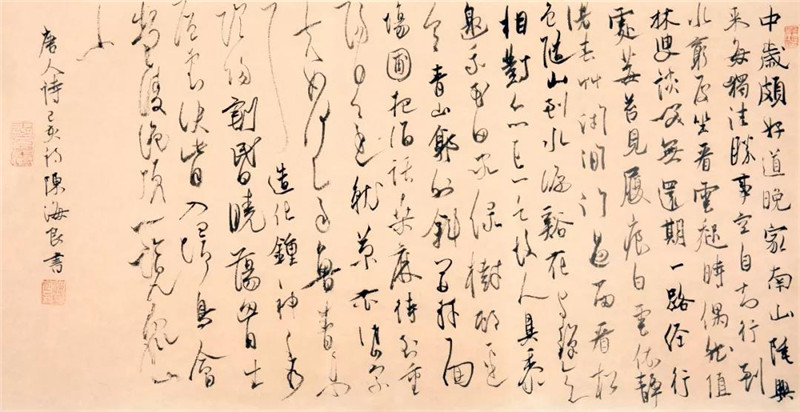 中歲頗好道晚家南山陲興
来每獨往勝事空自知行到
水窮處坐看雲起時偶然值
林叟談笑無還期一路經行
處莓苔見履痕白雲依靜
渚春草閉閑門過雨看松
色隨山到水源溪花與禪意
相對亦忘言故人具雞
黍邀我至田家綠樹村邊
合青山郭外斜開軒面
場圃把酒話桑麻待到重
陽日還來就菊花岱宗
夫如何齊魯青未
了造化鍾神秀
陰陽割昏曉蕩胸生
層雲決眥入歸鳥會
當凌絕頂一覽眾山
小
唐人詩己亥陳海良書